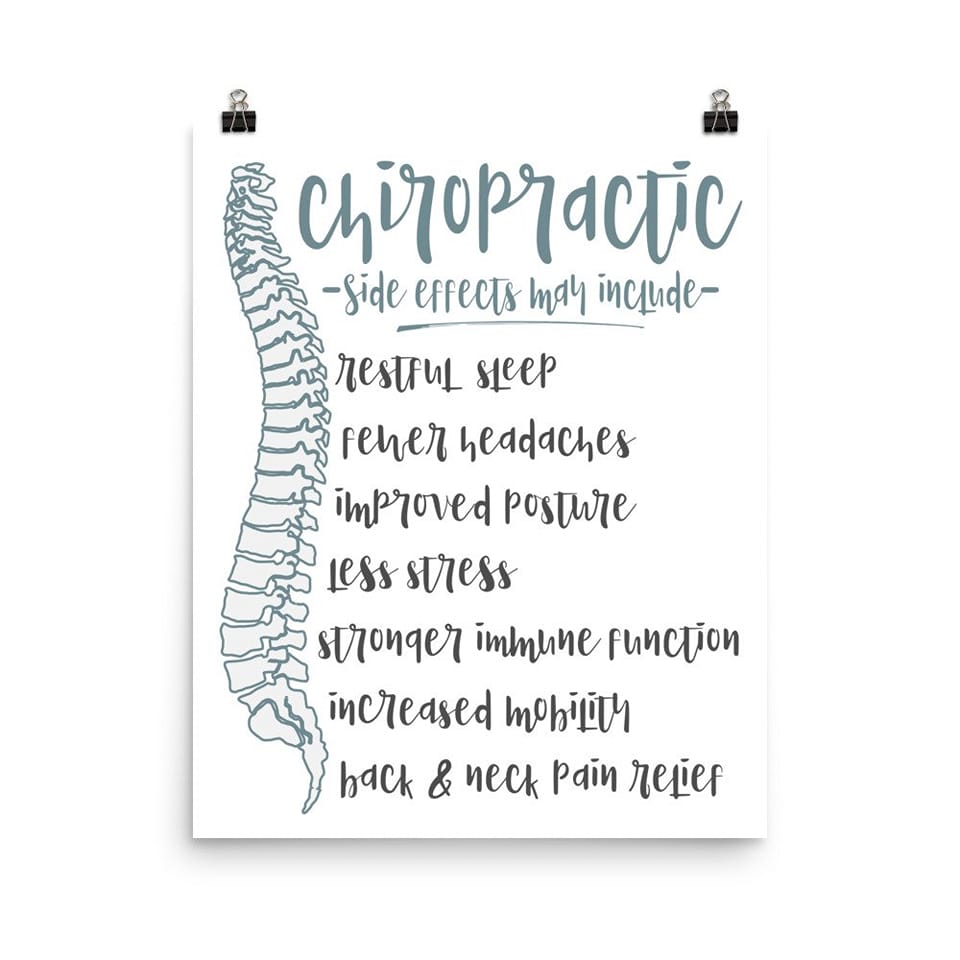 chiropractic
-side effects may include-
restful sleep
fewer headaches
improved posture
less stress
stronger immune function
increased mobility
back & neck pain relief